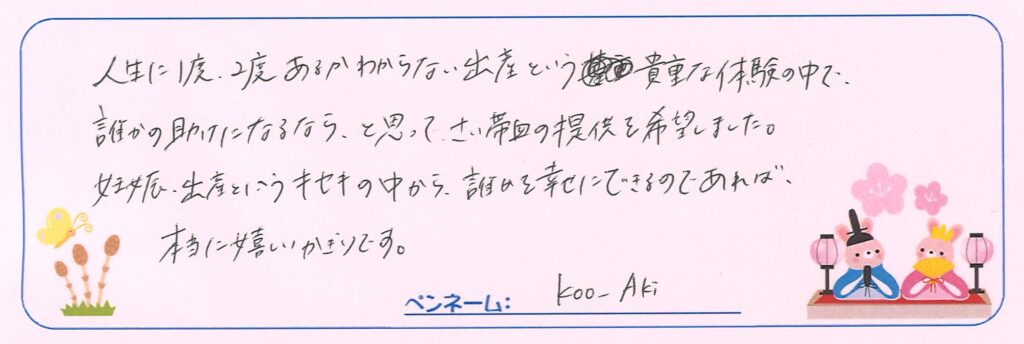 人生に1度、2度あるかわからない出産という貴重な体験の中で、
誰かの助けになるなら、と思って、さい帯血の提供を希望しました。
妊娠、出産というキセキの中から、誰かを幸せにできるのであれば、
本当に嬉しいかぎりです。
ペンネーム: Koo_Aki